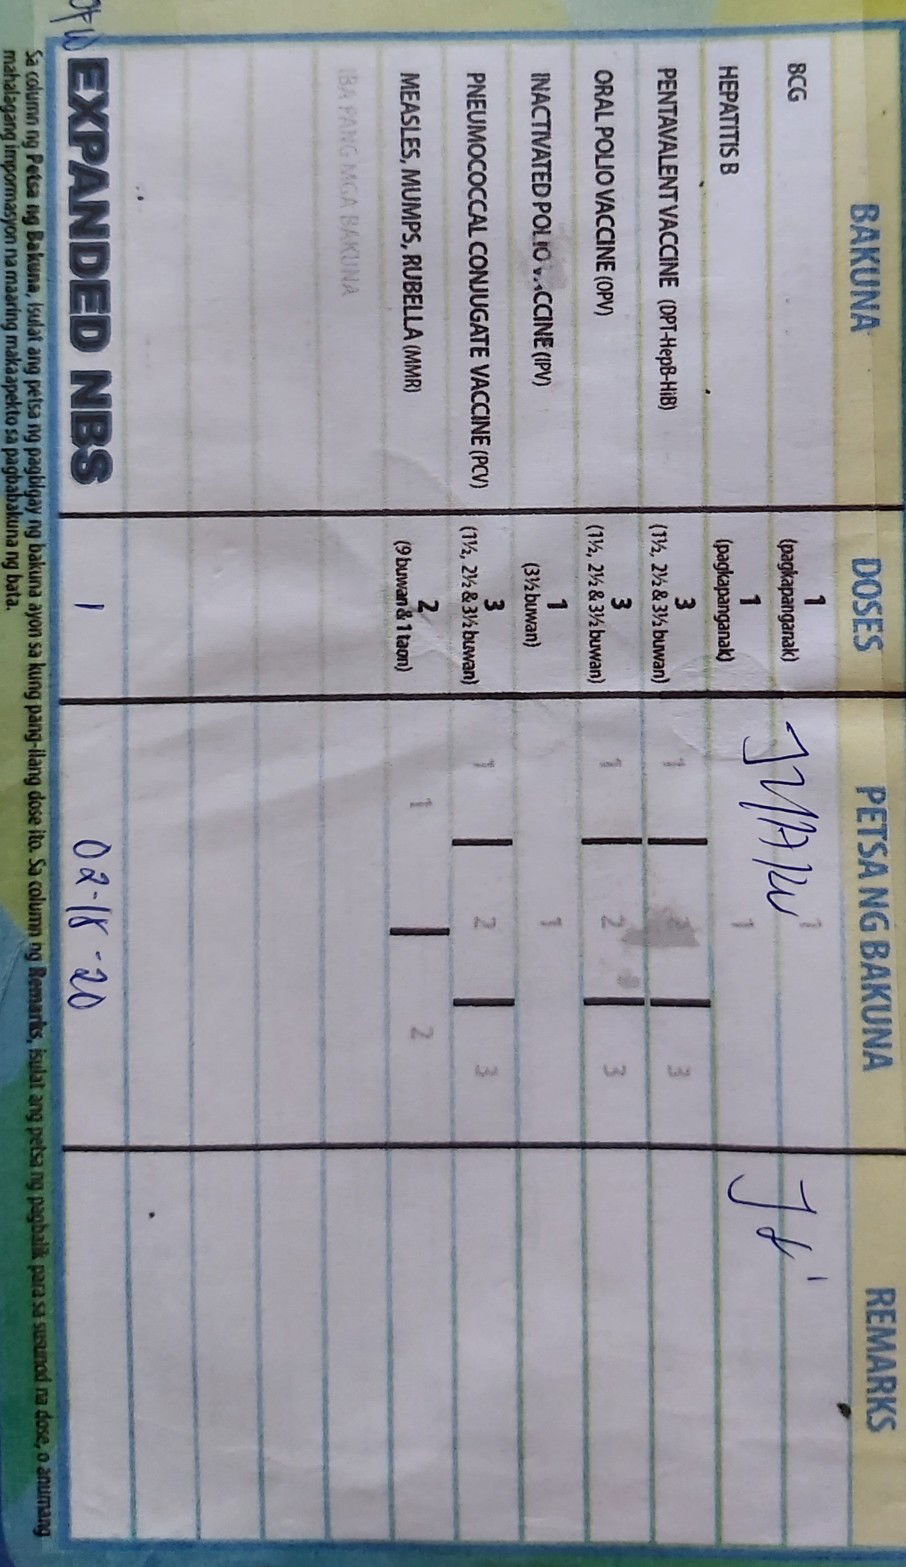 BAKUNA DOSES PETSA NG BAKUNA REMARKS
BCG 1
(pagkapanganak) 1
HEPATITIS B 1
(pagkapanganak) 1
PENTAVALENT VACCINE (DPT-HepB-HiB) 3
(1½, 2½ & 3½ buwan) 1 2 3
ORAL POLIO VACCINE (OPV) 3
(1½, 2½ & 3½ buwan) 1 2 3
INACTIVATED POLIO VACCINE (IPV) 1
(3½ buwan) 1
PNEUMOCOCCAL CONJUGATE VACCINE (PCV) 3
(1½, 2½ & 3½ buwan) 1 2 3
MEASLES, MUMPS, RUBELLA (MMR) 2
(9 buwan & 1 taon) 1 2
IBA PANG MGA BAKUNA
EXPANDED NBS 1 02-18-20
Sa column ng Petsa ng Bakuna, isulat ang petsa ng pagbigay ng bakuna ayon sa kung pang-ilang dose ito. Sa column ng Remarks, isulat ang petsa ng pagbalik para sa susunod na dose, o anumang
mahalagang impormasyon na maaring makaapekto sa pagbabakuna ng bata.